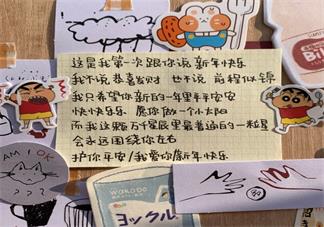 这是我第一次跟你说 新年快乐
我不说 恭喜发财 也不说 前程似锦
我只希望你 新的一年里平平安安
快快乐乐 愿你做一个小太阳
而我这颗万千星辰里最普通的一粒星
会永远围绕你左右
护你平安/我爱你新年快乐
AM I OK
wakodo
ヨックル